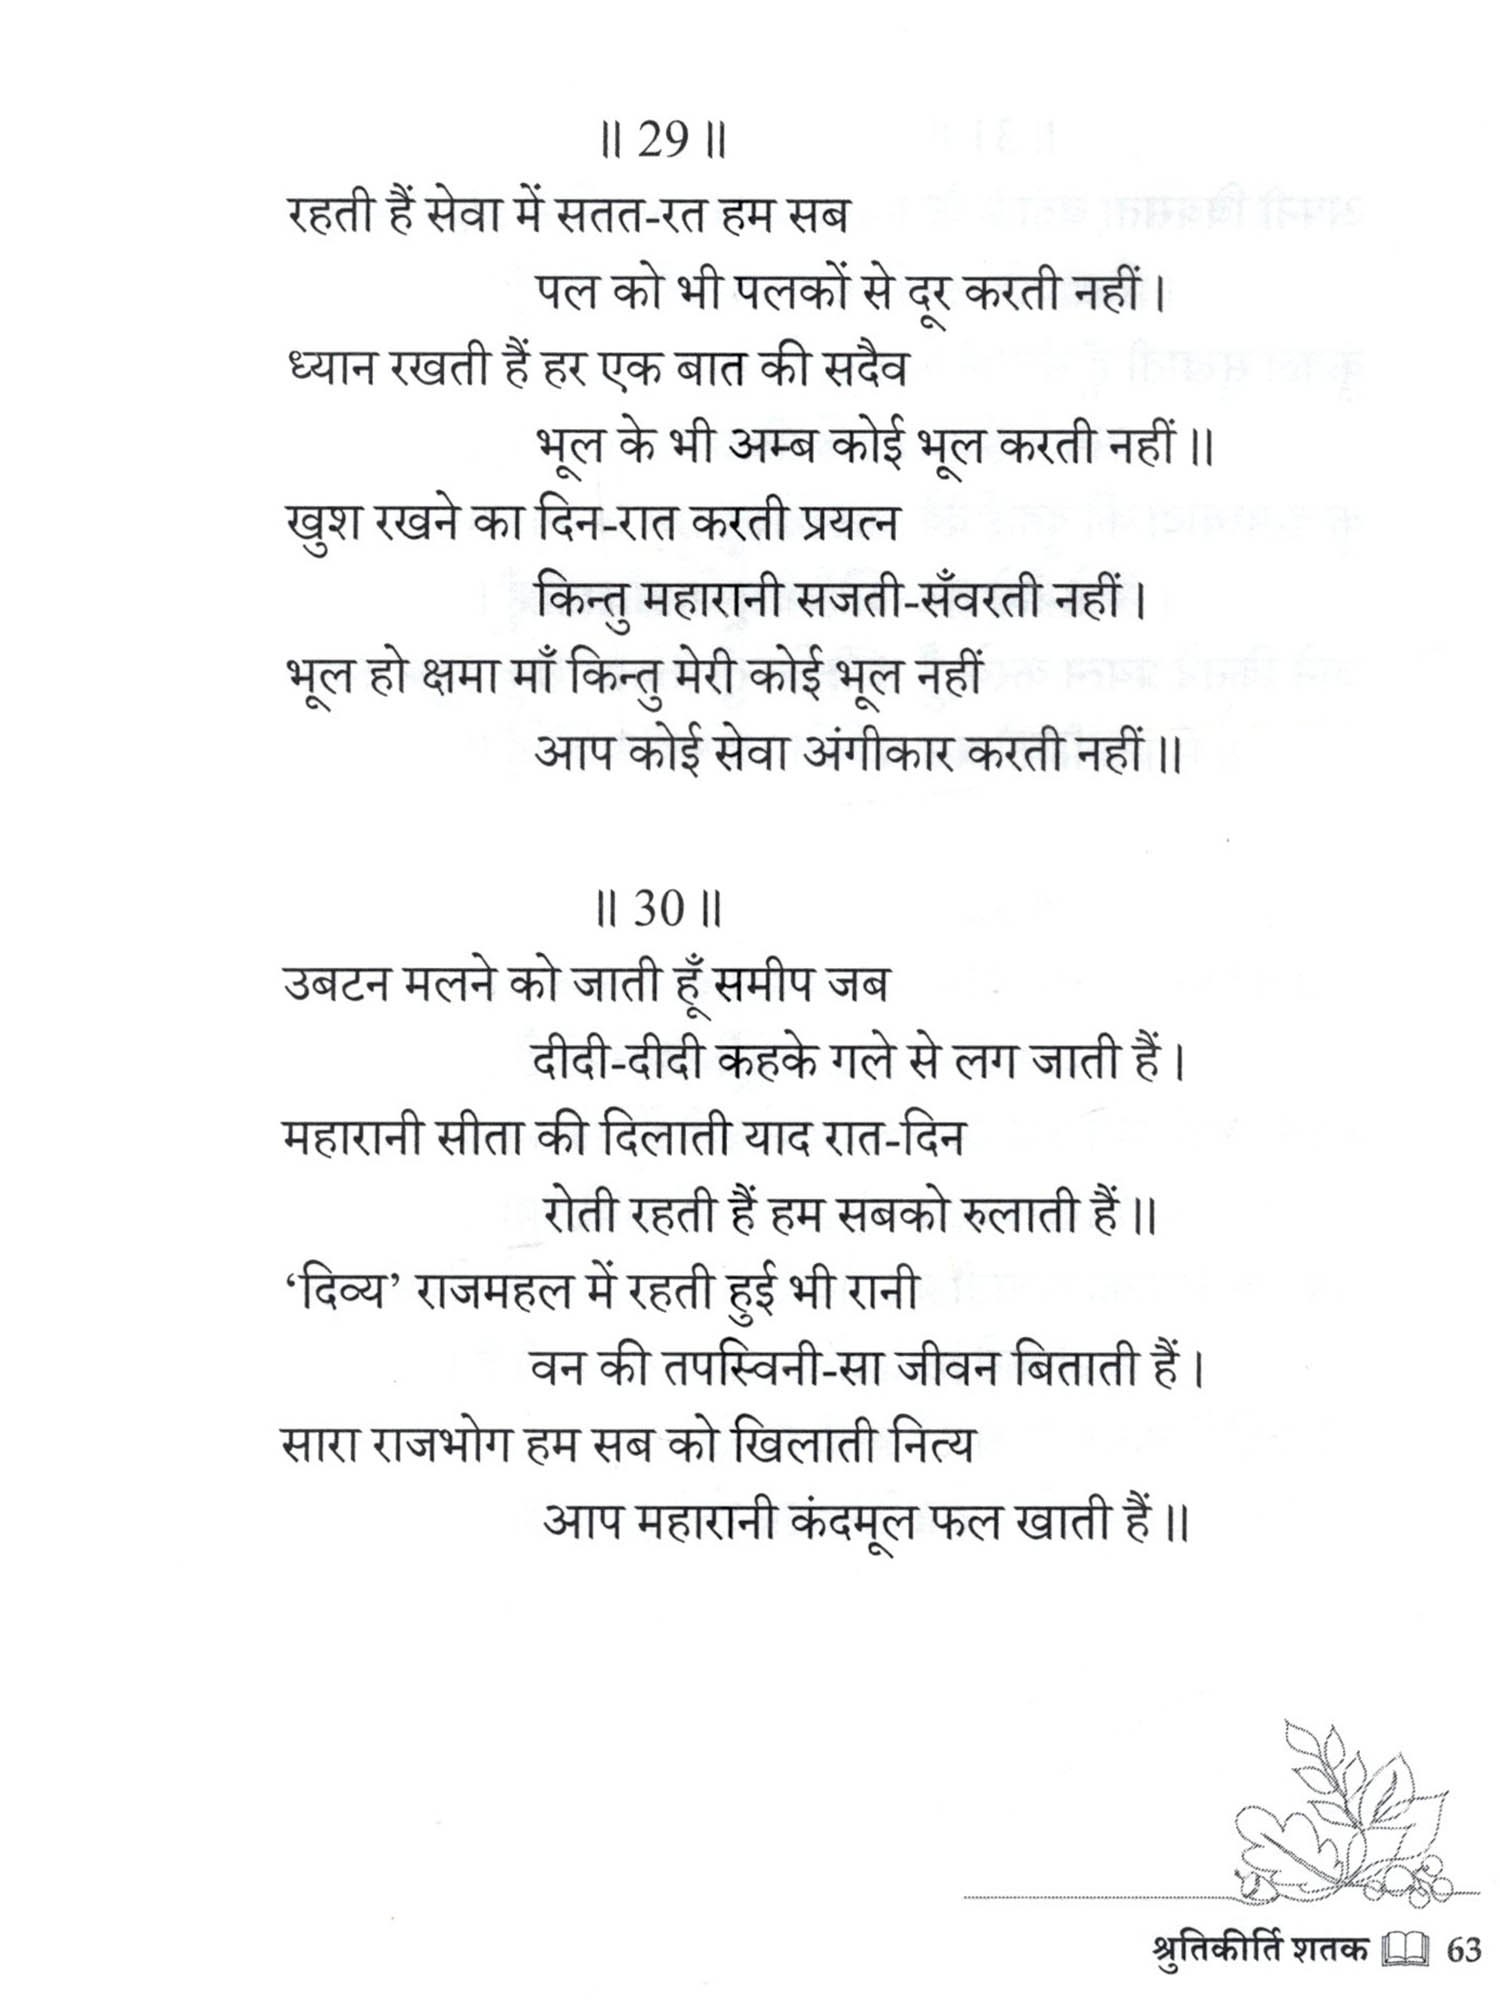 ॥ 29 ॥
रहती हैं सेवा में सतत-रत हम सब
पल को भी पलकों से दूर करती नहीं।
ध्यान रखती हैं हर एक बात की सदैव
भूल के भी अम्ब कोई भूल करती नहीं॥
खुश रखने का दिन-रात करती प्रयत्न
किन्तु महारानी सजती-सँवरती नहीं।
भूल हो क्षमा माँ किन्तु मेरी कोई भूल नहीं
आप कोई सेवा अंगीकार करती नहीं॥
॥ 30 ॥
उबटन मलने को जाती हूँ समीप जब
दीदी-दीदी कहके गले से लग जाती हैं।
महारानी सीता की दिलाती याद रात-दिन
रोती रहती हैं हम सबको रुलाती हैं॥
‘दिव्य’ राजमहल में रहती हुई भी रानी
वन की तपस्विनी-सा जीवन बिताती हैं।
सारा राजभोग हम सब को खिलाती नित्य
आप महारानी कंदमूल फल खाती हैं॥
श्रुतिकीर्ति शतक 63